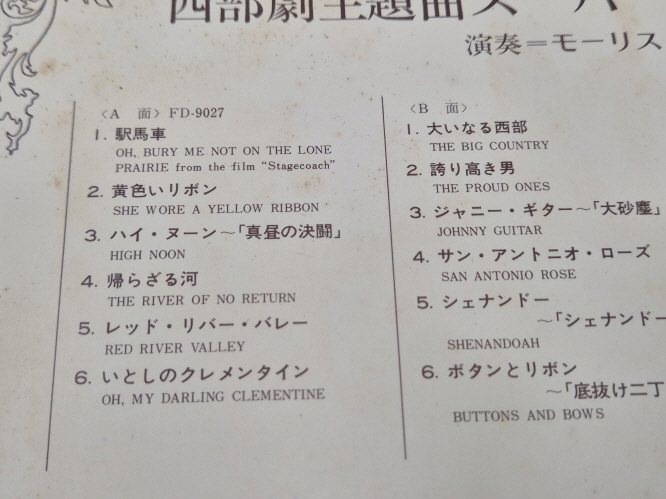 西部劇主題曲スーパー
演奏=モーリス
〈A 面〉FD-9027
1. 駅馬車
OH, BURY ME NOT ON THE LONE
PRAIRIE from the film "Stagecoach"
2. 黄色いリボン
SHE WORE A YELLOW RIBBON
3. ハイ・ヌーン〜「真昼の決闘」
HIGH NOON
4. 帰らざる河
THE RIVER OF NO RETURN
5. レッド・リバー・バレー
RED RIVER VALLEY
6. いとしのクレメンタイン
OH, MY DARLING CLEMENTINE
〈B 面〉
1. 大いなる西部
THE BIG COUNTRY
2. 誇り高き男
THE PROUD ONES
3. ジャニー・ギター〜「大砂塵」
JOHNNY GUITAR
4. サン・アントニオ・ローズ
SAN ANTONIO ROSE
5. シェナンドー
〜「シェナンドー
SHENANDOAH
6. ボタンとリボン
〜「底抜け二丁
BUTTONS AND BOWS